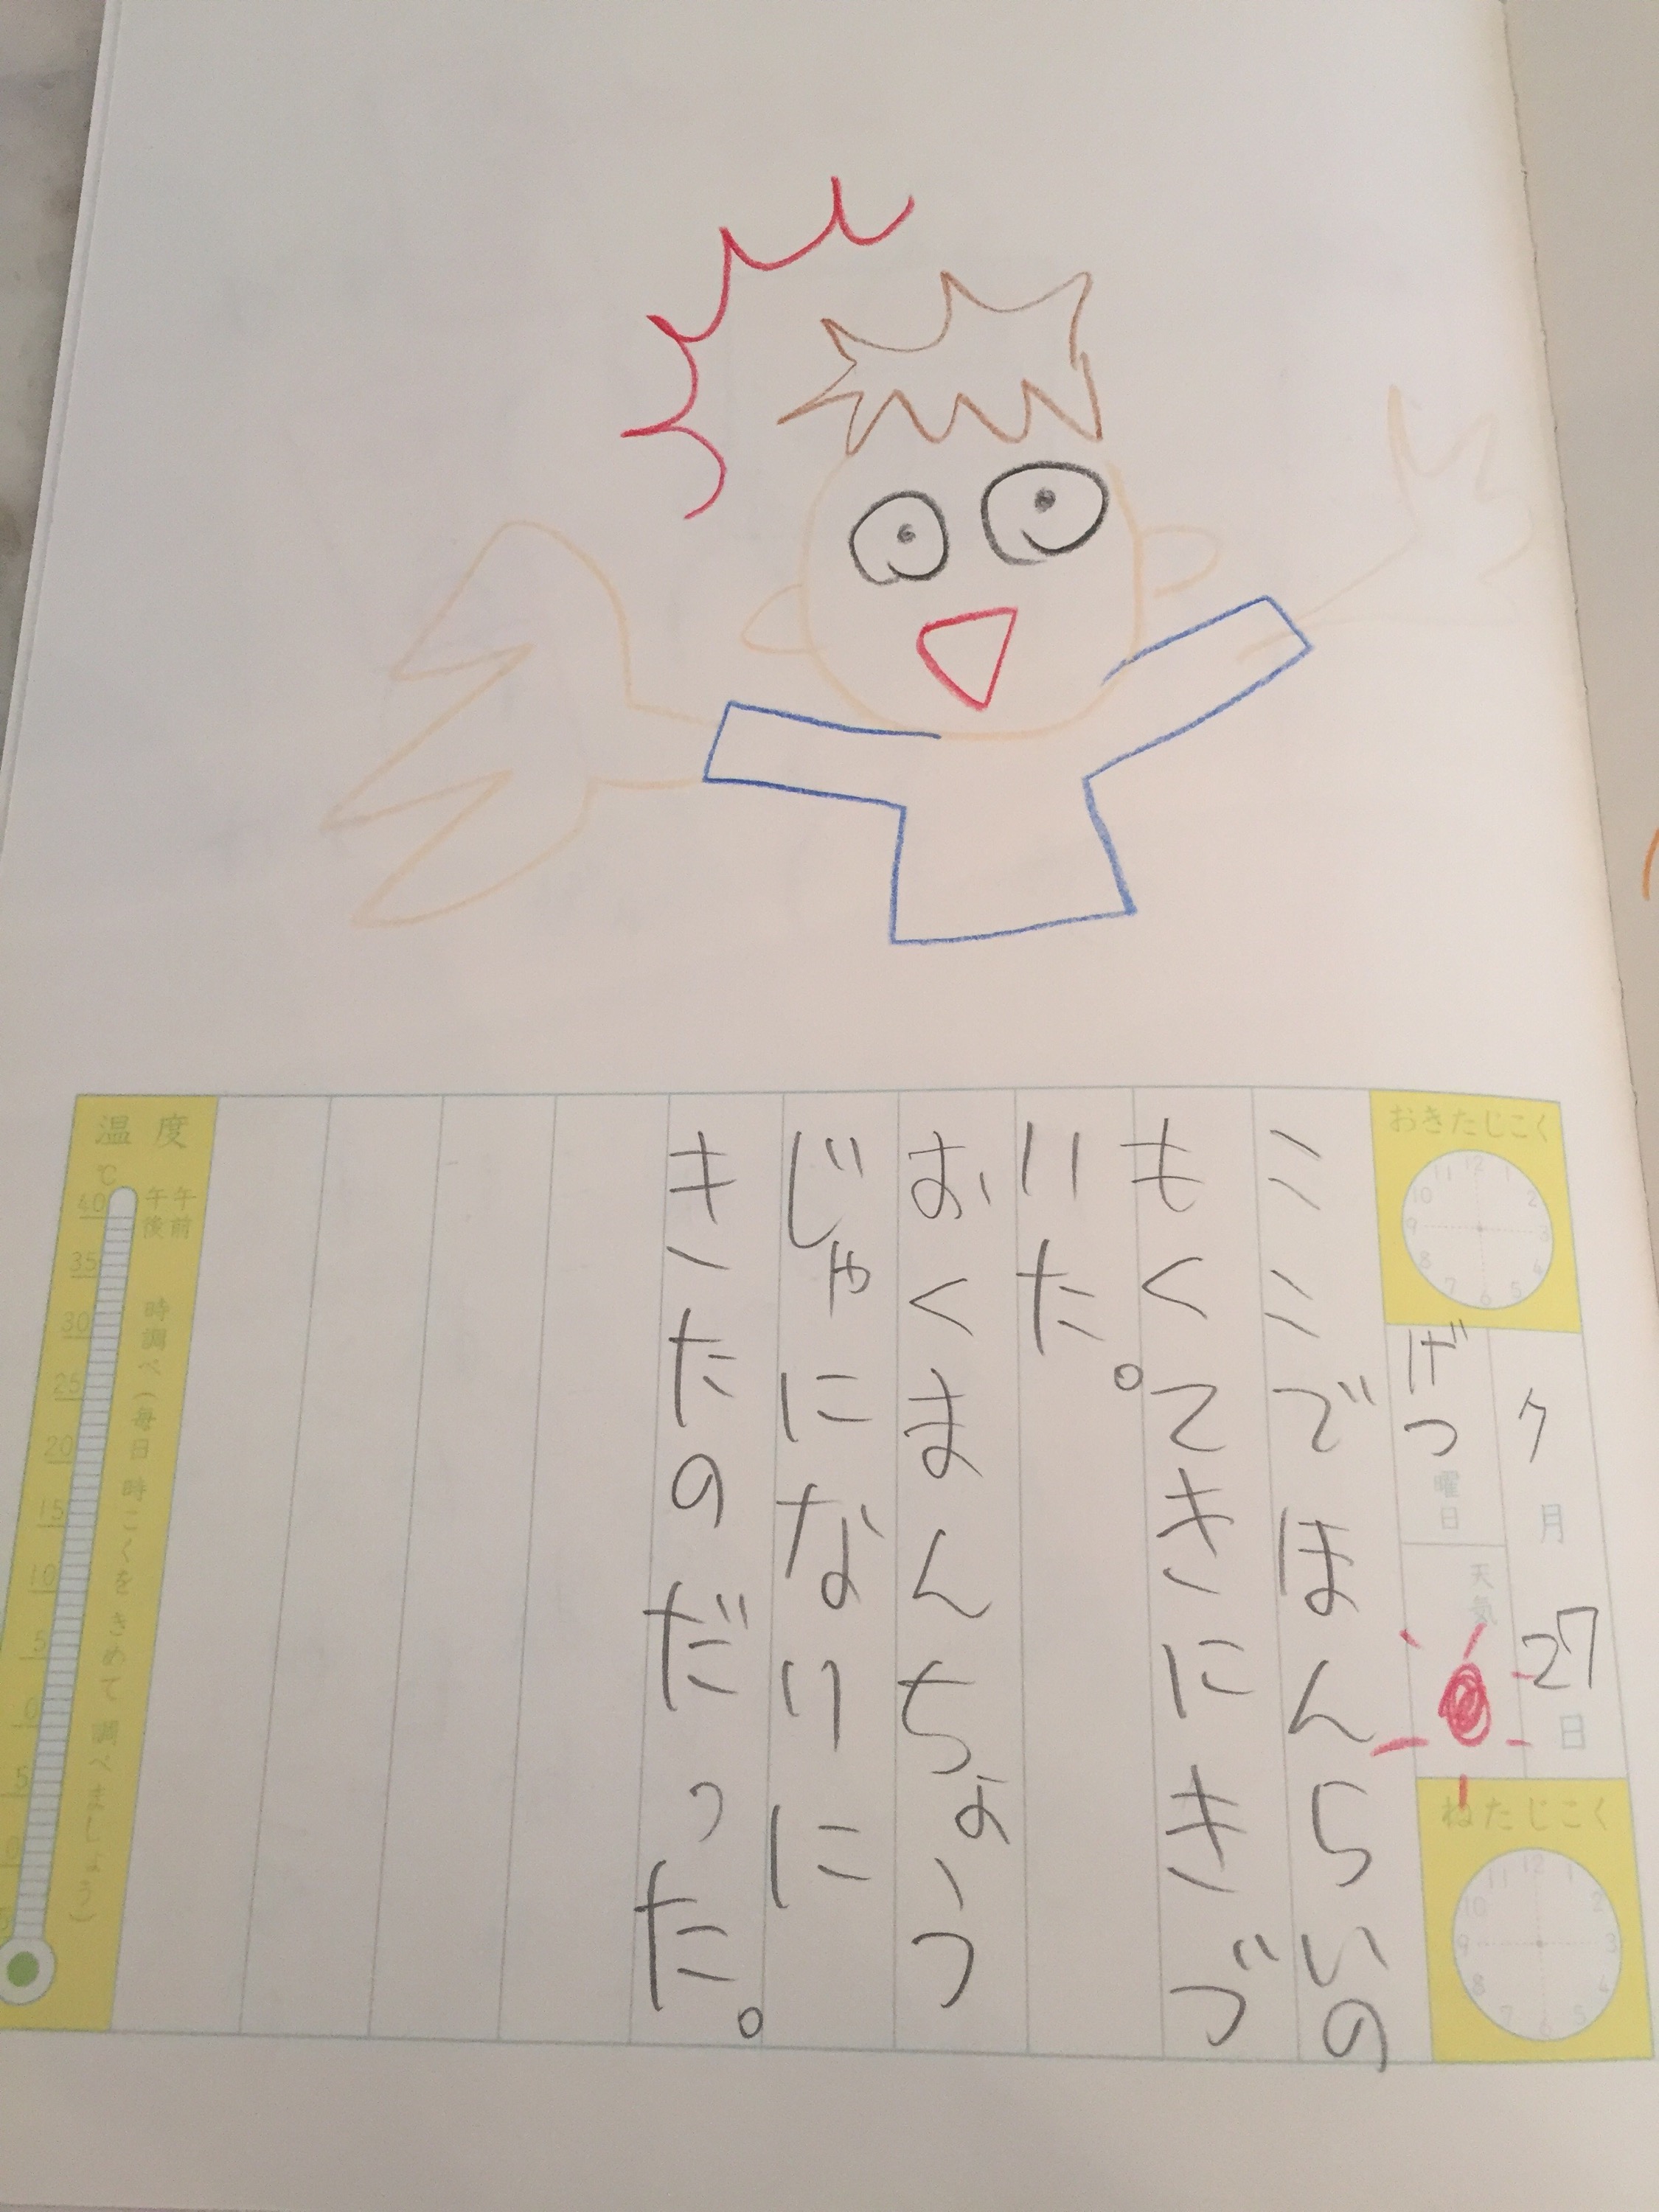 おきたじこく
12 1 2 3 4 5 6 7 8 9 10 11
7月27日
げつ曜日
天気
ねたじこく
12 1 2 3 4 5 6 7 8 9 10 11
ここでほんらいの
もくてきにきづ
いた。
おくまんちょう
じゃになりに
きたのだった。
温度
℃
午前
午後
時調べ(毎日 時こくをきめて調べましょう)
40
35
30
25
20
15
10
5
0
5